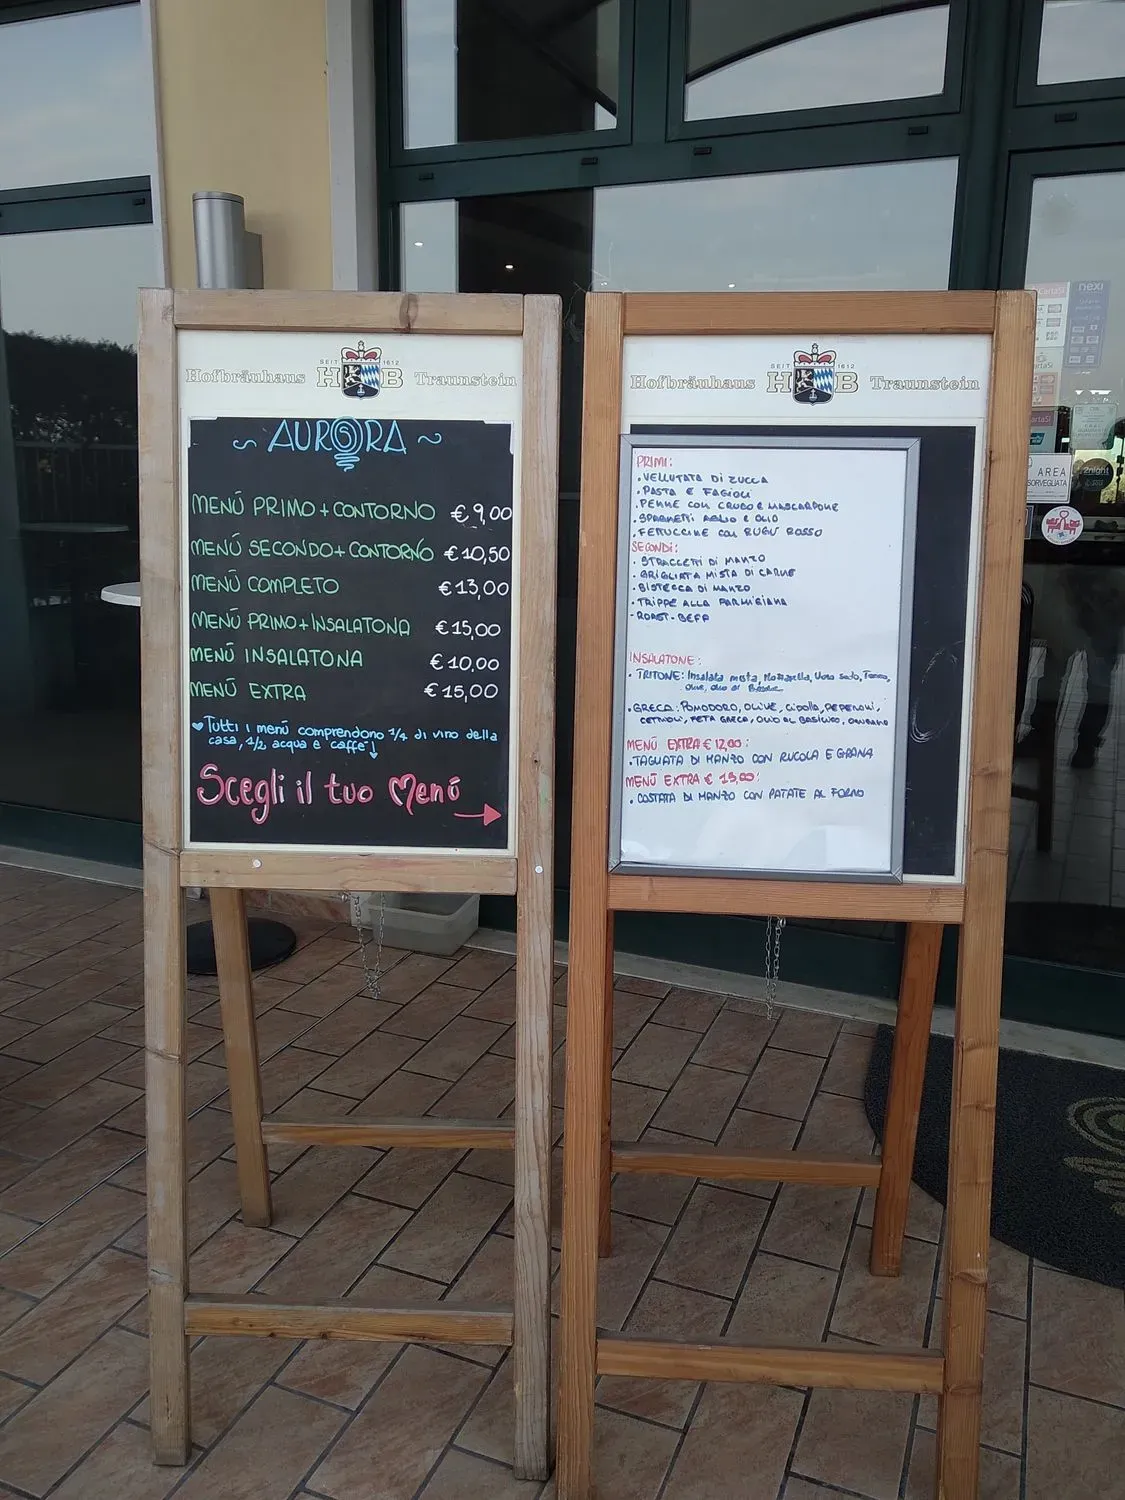 SEIT 1612
Hofbräuhaus HB Traunstein
~ AURORA ~
MENÚ PRIMO + CONTORNO € 9,00
MENÚ SECONDO + CONTORNO € 10,50
MENÚ COMPLETO € 13,00
MENÚ PRIMO + INSALATONA € 15,00
MENÚ INSALATONA € 10,00
MENÚ EXTRA € 15,00
Tutti i menú comprendono 1/4 di vino della
casa, 1/2 acqua e caffé!
Scegli il tuo Menú
SEIT 1612
Hofbräuhaus HB Traunstein
PRIMI:
. VELLUTATA DI ZUCCA
. PASTA E FAGIOLI
. PENNE CON CRUDO E MASCARPONE
. SPAGHETTI AGLIO E OLIO
. FETUCCINE CON RUGÚ ROSSO
SECONDI:
. STRACCETTI DI MANZO
. GRIGLIATA MISTA DI CARNE
. BISTECCA DI MANZO
. TRIPPE ALLA PARMIGIANA
- ROAST-BEFF
INSALATONE:
. TRITONE: Insalata mista, Mozzarella, Uovo sodo, Tonno,
Olive, olio al
. GRECA: POMODORO, OLIVE, CIPOLLA, PEPERONI,
CETRIOLI, FETA GRECA, OLIO AL BASILICO, ORIGANO
MENÚ EXTRA € 12,00:
. TAGLIATA DI MANZO CON RUCOLA E GRANA
MENÚ EXTRA € 15,00:
. COSTATA DI MANZO CON PATATE AL FORNO
nexi
CartaSi
AREA
SORVEGLIATA